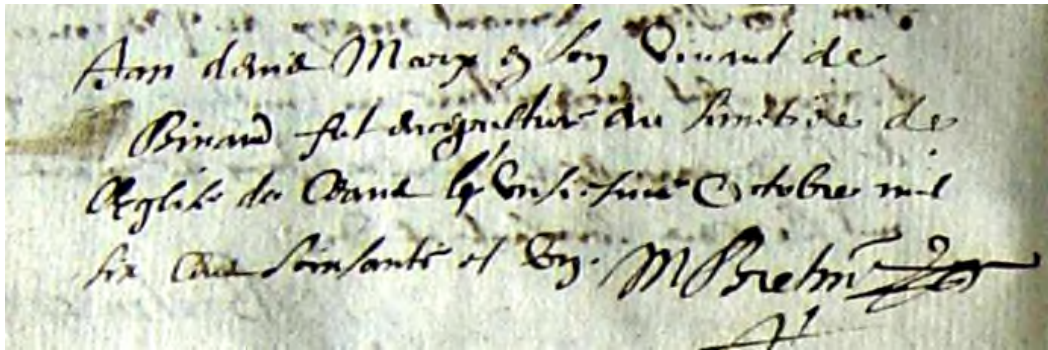 Jan denis Marye en son Vivant de
Binard fut ensepulturé au simetiere de
leglise de Ceans le Unsiesme Octobre mil
six Cens soinsante et Un. M Bretin